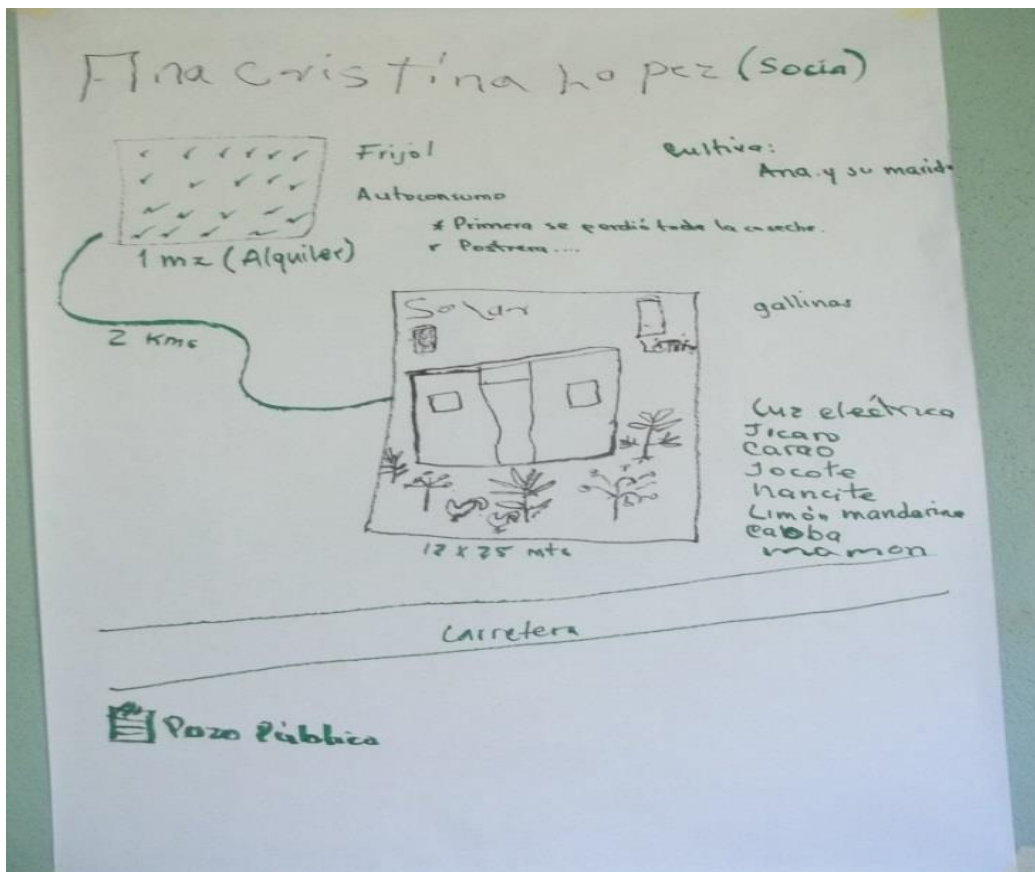 Ana cristina Lopez (Socia)
Frijol
Cultiva:
Ana y su marido
Autoconsumo
* Primera se perdió toda la cosecha.
Postrera....
1 mz (Alquiler)
2 Kms
Solar
gallinas
Luz eléctrica
Jicaro
Carao
Jocote
Nancite
Limón mandarina
mamon
12 x 25 mts
Carretera
Pozo Público